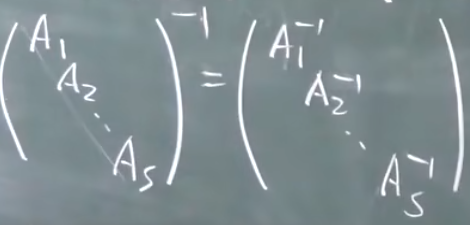 $$\begin{pmatrix} A_1 & & & \\ & A_2 & & \\ & & \ddots & \\ & & & A_s \end{pmatrix}^{-1} = \begin{pmatrix} A_1^{-1} & & & \\ & A_2^{-1} & & \\ & & \ddots & \\ & & & A_s^{-1} \end{pmatrix}$$